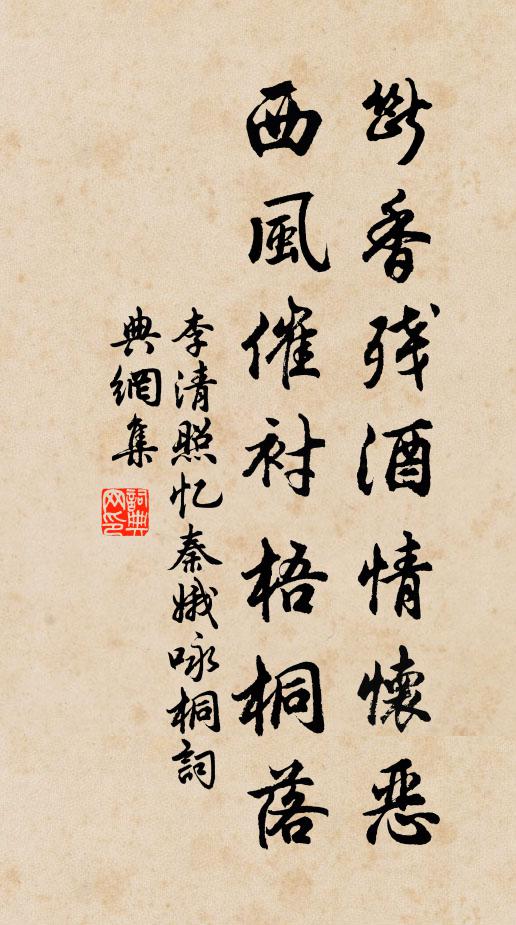 断香残酒情懷惡
西風催衬梧桐落
李清照忆秦娥咏桐詞
典網集
詞典網印